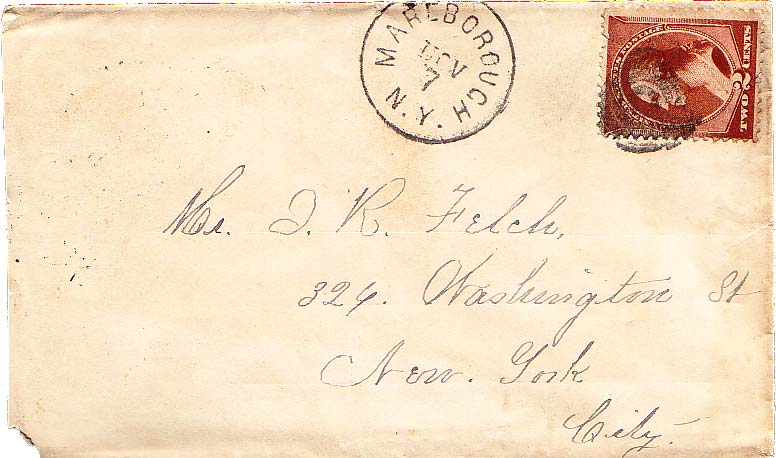 MARLBOROUGH. N.Y.
NOV
7
TWO 2 CENTS
Mr. J. R. Felch,
324. Washington St
New. York
City.